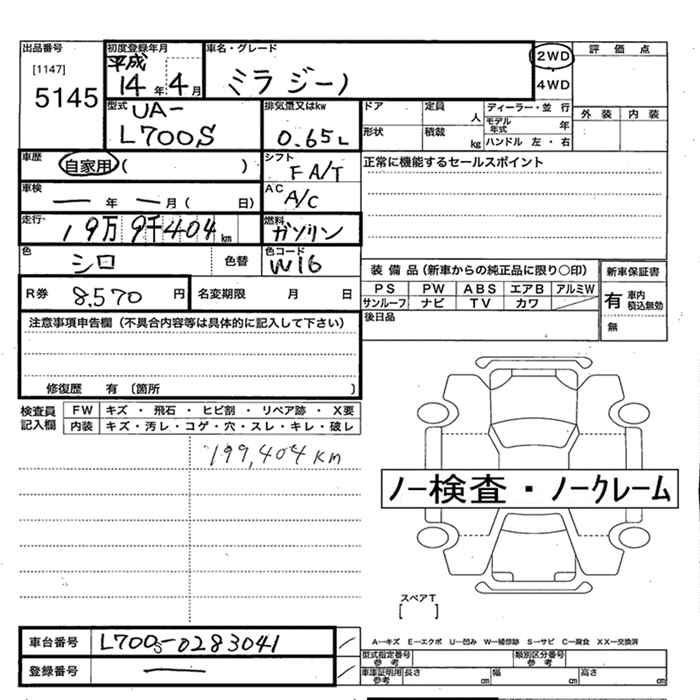 出品番号
[1147]
5145
初度登録年月
平成
14年4月
車名・グレード
ミラ ジーノ
2WD
4WD
評価点
外装 内装
型式
UA-
L700S
排気量又はkw
0.65L
ドア
定員
人
形状
積載
kg
ディーラー・並行
モデル
年式
年
ハンドル 左・右
車歴
自家用 ( )
シフト
FA/T
正常に機能するセールスポイント
車検
ー年 ー月( 日)
AC
A/C
走行
19万9千404km
燃料
ガソリン
色
シロ
色替
色コード
W16
装備品(新車からの純正品に限り〇印)
PS PW ABS エアB アルミW
サンルーフ ナビ TV カワ
新車保証書
有 車内
積込無効
無
R券
8,570円
名変期限 月 日
後日品
注意事項申告欄(不具合内容等は具体的に記入して下さい)
修復歴 有〔箇所 〕
検査員
記入欄
FW キズ・飛石・ヒビ割・リペア跡・X要
内装 キズ・汚レ・コゲ・穴・スレ・キレ・破レ
199,404km
ノー検査・ノークレーム
スペアT
[ ]
車台番号
L700S-0283041
登録番号
ー
A―キズ E―エクボ U―凹み W―補修跡 S―サビ C―腐食 XX―交換済
型式指定番号
参考
類別区分番号
参考
車庫証明用
参考
長さ cm 幅 cm 高さ cm